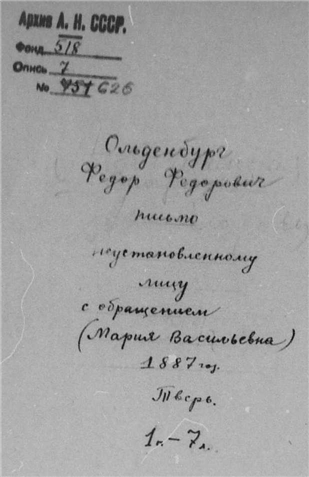 Архив А. Н. СССР.
Фонд 518
Опись 7
№ 751 626
Ольденбург
Федор Федорович
письмо
неустановленному
лицу
с обращением
(Мария Васильевна)
1887 год.
Тверь.
1п. – 7л.